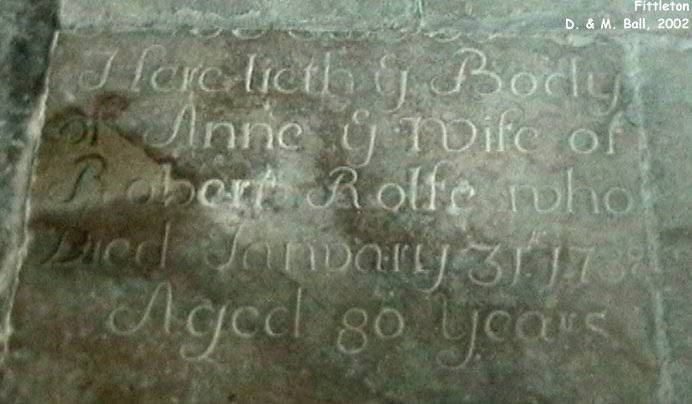 Fittleton
D. & M. Ball, 2002
Here lieth ye Body
of Anne ye Wife of
Robert Rolfe who
Died January 31st
Aged 80 Years